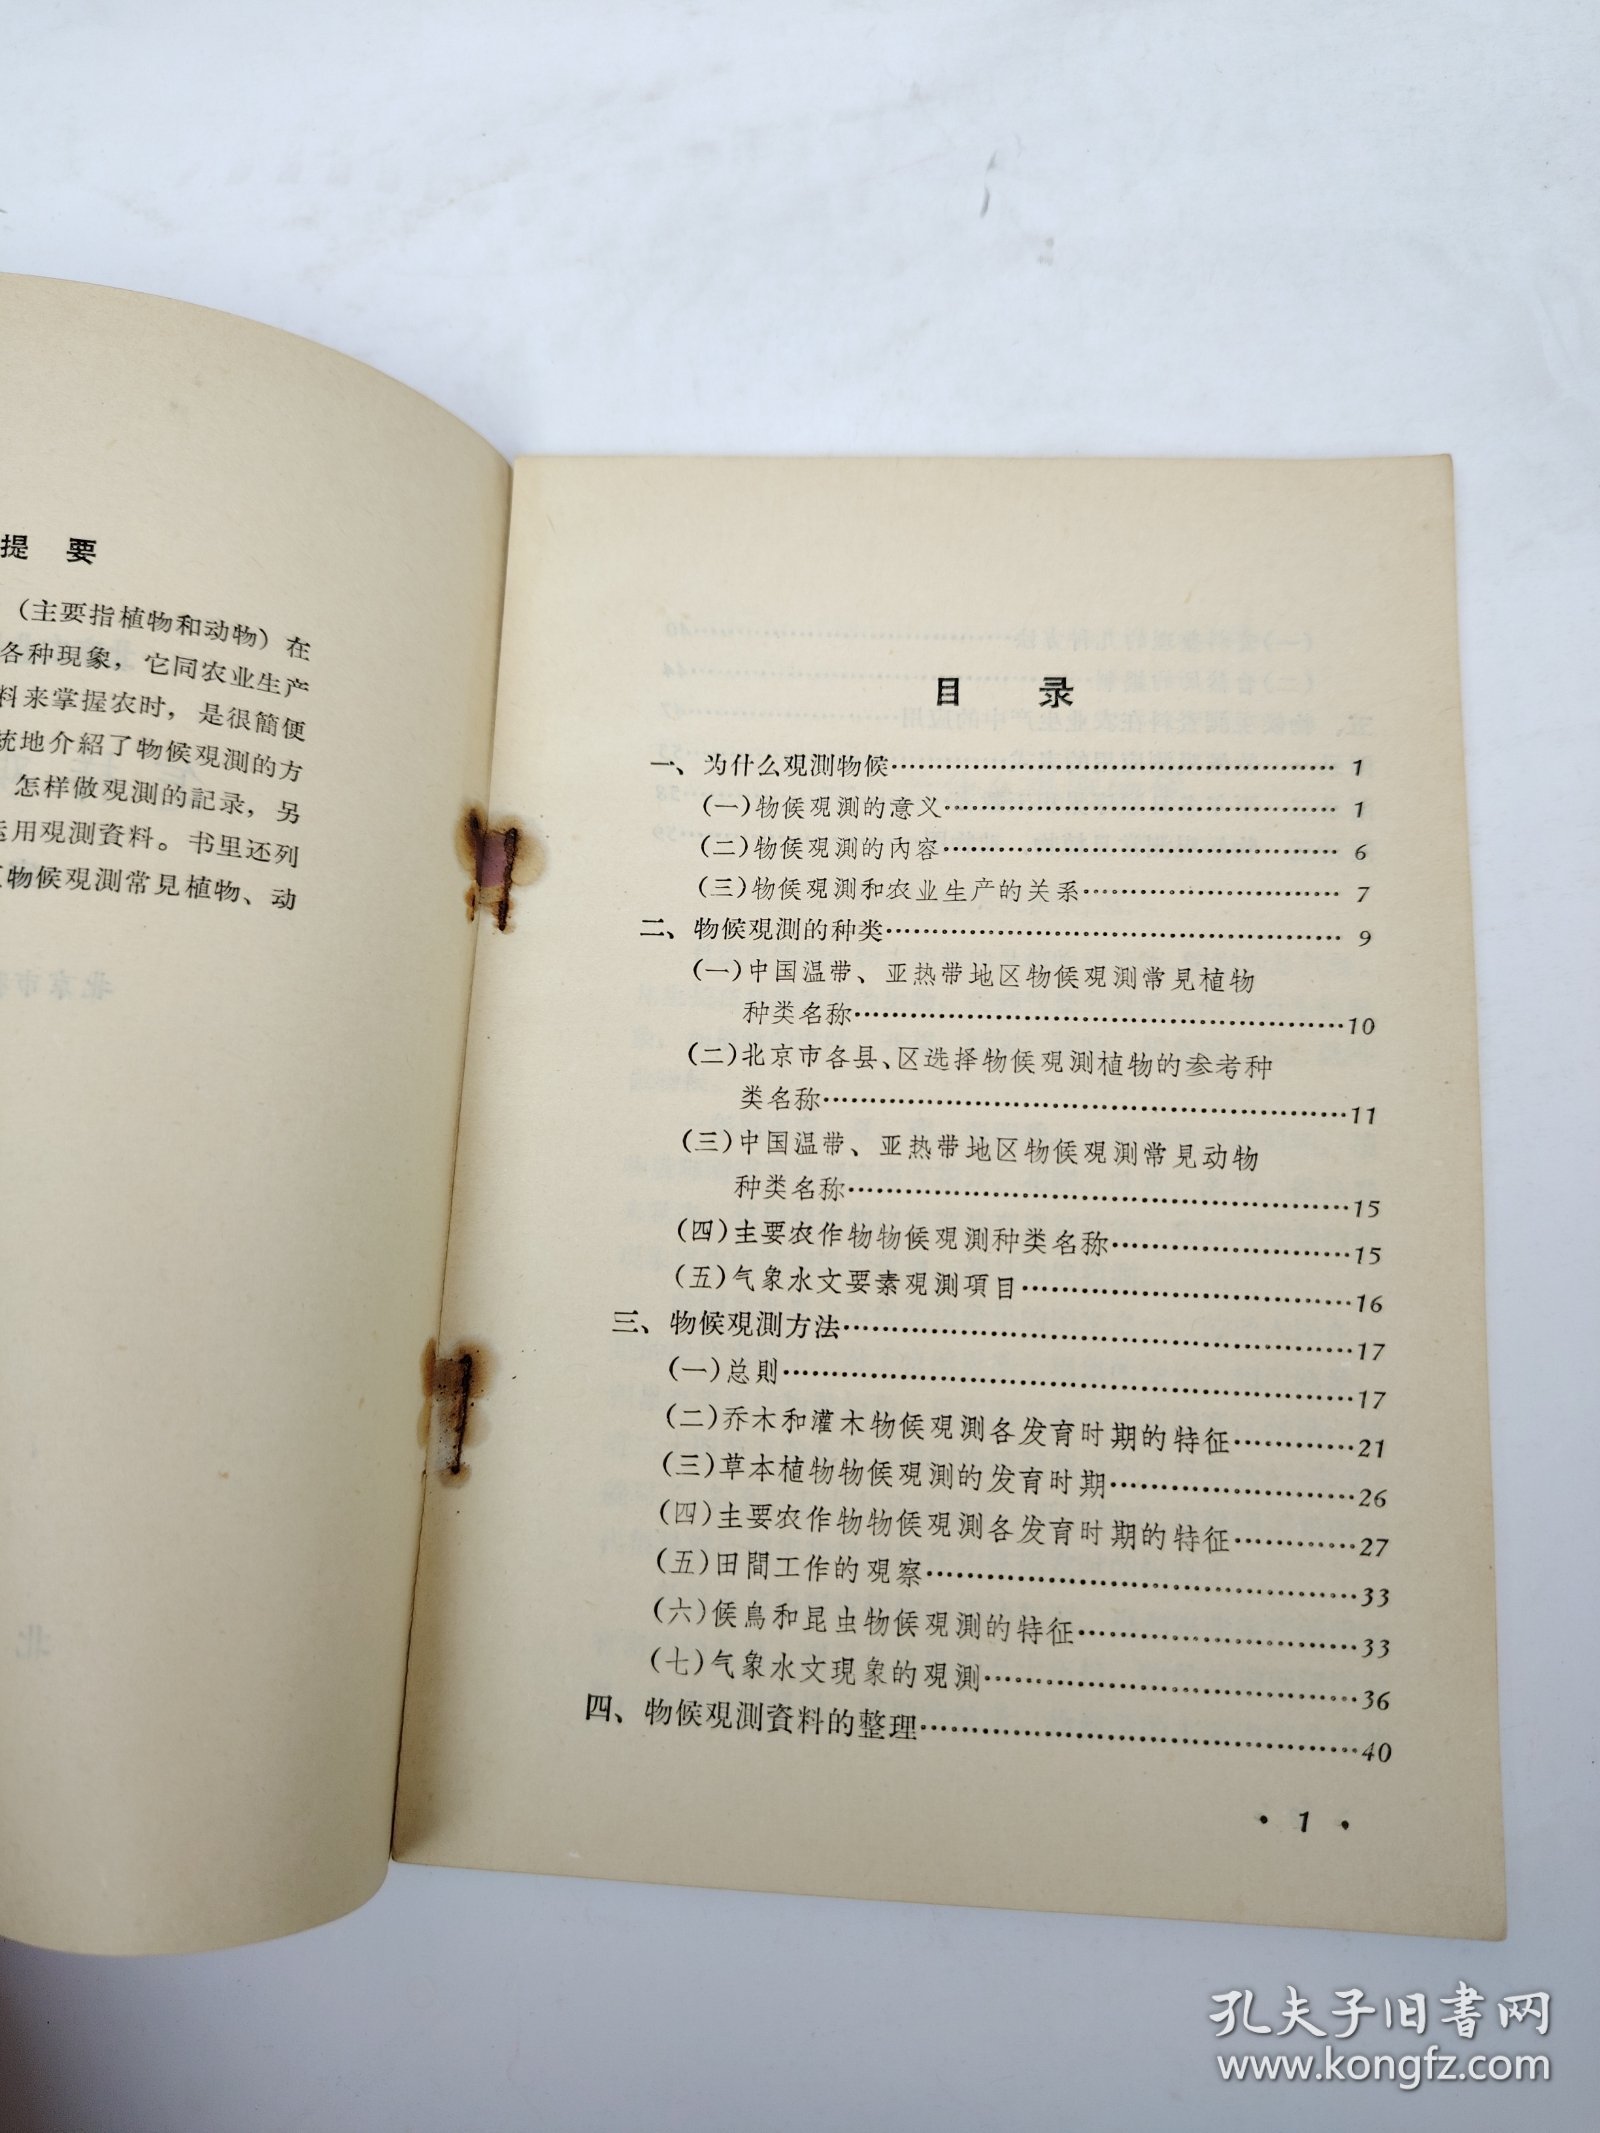 提 要
（主要指植物和动物）在
各种現象，它同农业生产
料来掌握农时，是很簡便
統地介紹了物候观測的方
怎样做观測的記录，另
运用观測資料。书里还列
物候观測常見植物、动
目 录
一、为什么观測物候…………………… 1
(一)物候观測的意义…………………… 1
(二)物候观測的內容…………………… 6
(三)物候观測和农业生产的关系…………… 7
二、物候观測的种类…………………… 9
(一)中国温带、亚热带地区物候观測常見植物
种类名称……………………10
(二)北京市各县、区选择物候观測植物的参考种
类名称……………………11
(三)中国温带、亚热带地区物候观測常見动物
种类名称……………………15
(四)主要农作物物候观測种类名称……………15
(五)气象水文要素观測項目………………16
三、物候观測方法……………………17
(一)总則……………………17
(二)乔木和灌木物候观測各发育时期的特征…………21
(三)草本植物物候观測的发育时期……………26
(四)主要农作物物候观測各发育时期的特征…………27
(五)田間工作的观察……………………33
(六)候鳥和昆虫物候观測的特征……………33
(七)气象水文現象的观測…………………36
四、物候观測資料的整理……………………40
• 1 •
孔夫子旧書网
www.kongfz.com